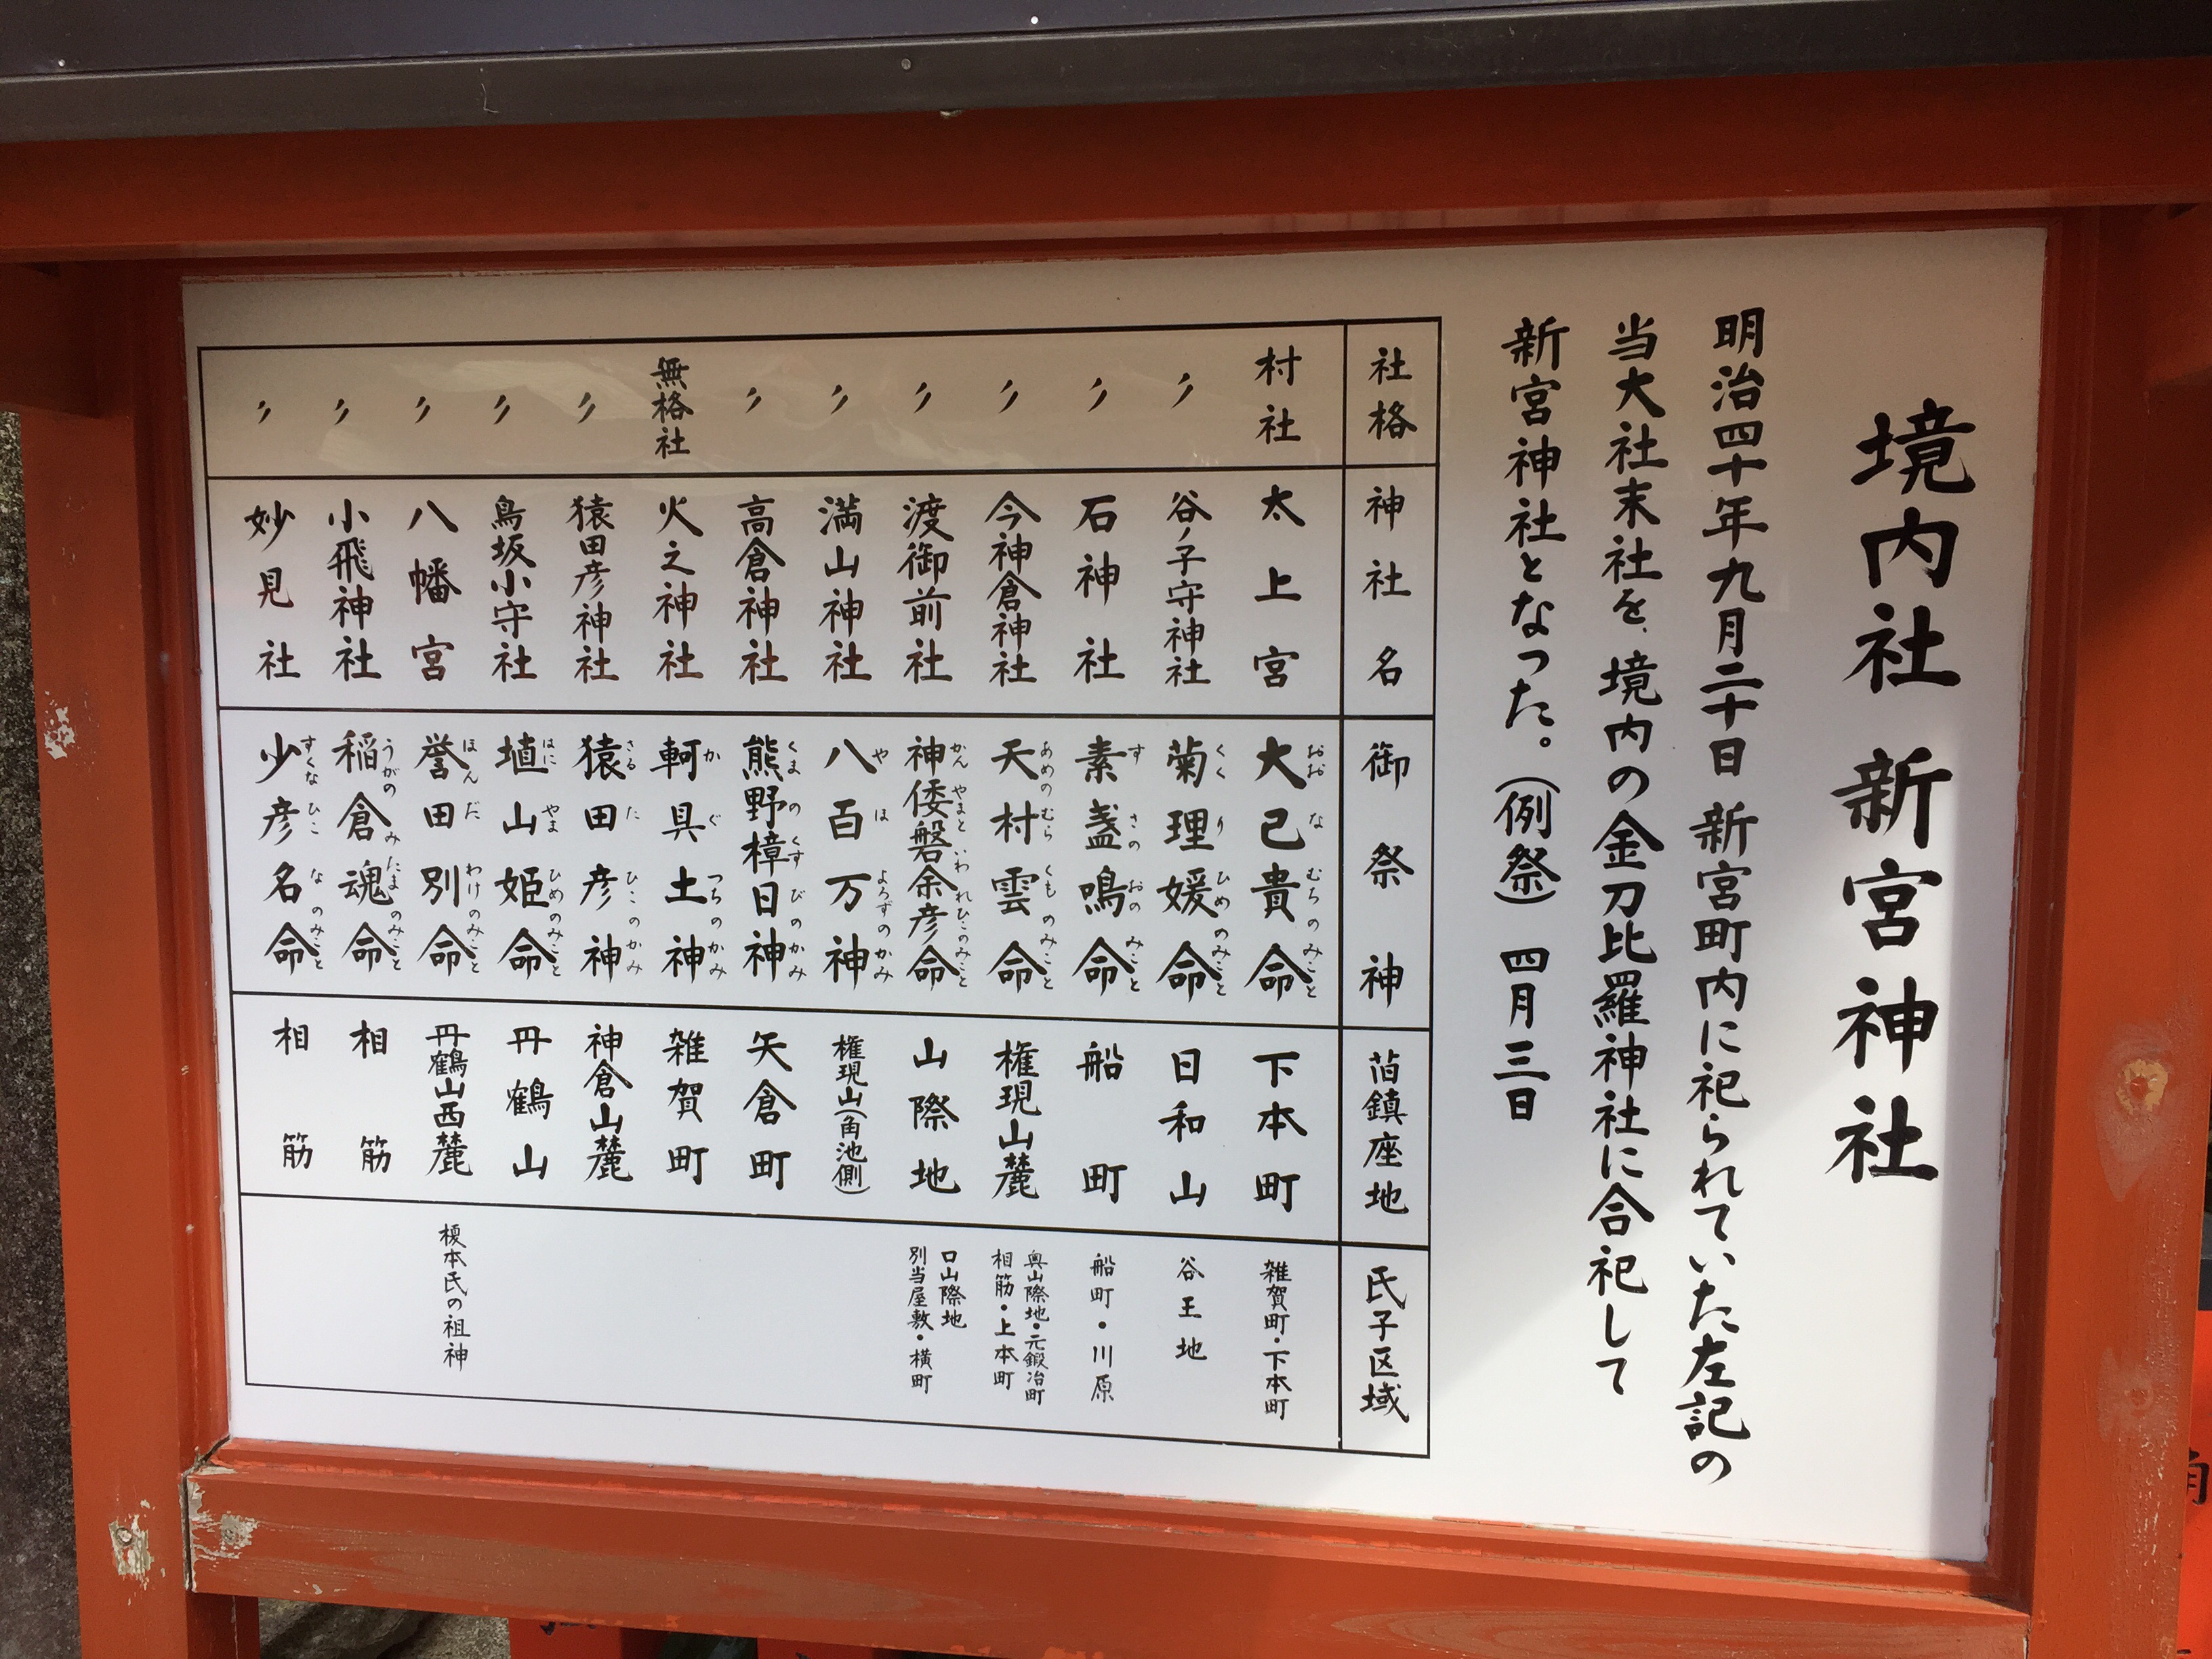 境内社 新宮神社
明治四十年九月二十日 新宮町内に祀られていた左記の
当大社末社を、境内の金刀比羅神社に合祀して
新宮神社となった。(例祭) 四月三日
社格 神社名 御祭神 旧鎮座地 氏子区域
村社 太上宮 大己貴命 下本町 雑賀町・下本町
おおなむちのみこと
〃 谷ノ子守神社 菊理媛命 日和山 谷王地
くくりひめのみこと
〃 石神社 素盞鳴命 船町 船町・川原
すさのおのみこと
〃 今神倉神社 天村雲命 権現山麓 奥山際地・元鍛冶町
相筋・上本町
あめのむらくものみこと
〃 渡御前社 神倭磐余彦命 山際地 口山際地
別当屋敷・横町
かんやまといわれひこのみこと
〃 満山神社 八百万神 権現山(角池側)
やほよろずのかみ
〃 高倉神社 熊野樟日神 矢倉町
くまのくすびのかみ
無格社 火之神社 軻具土神 雑賀町
かぐつちのかみ
〃 猿田彦神社 猿田彦神 神倉山麓
さるたひこのかみ
〃 鳥坂小守社 埴山姫命 丹鶴山
はにやまひめのみこと
〃 八幡宮 誉田別命 丹鶴山西麓 榎本氏の祖神
ほんだわけのみこと
〃 小飛神社 稲倉魂命 相筋
うがのみたまのみこと
〃 妙見社 少彦名命 相筋
すくなひこなのみこと